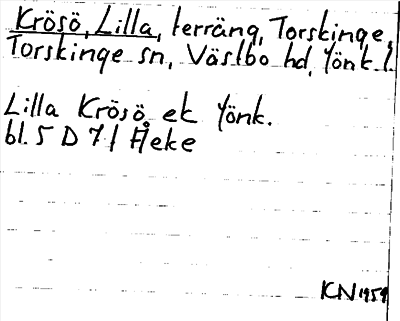 Krösö, Lilla, terräng, Torskinge,
Torskinge sn, Västbo hd, Jönk. l.
Lilla Krösö ek Jönk.
bl. 5 D 7 f Åeke
KN 1959